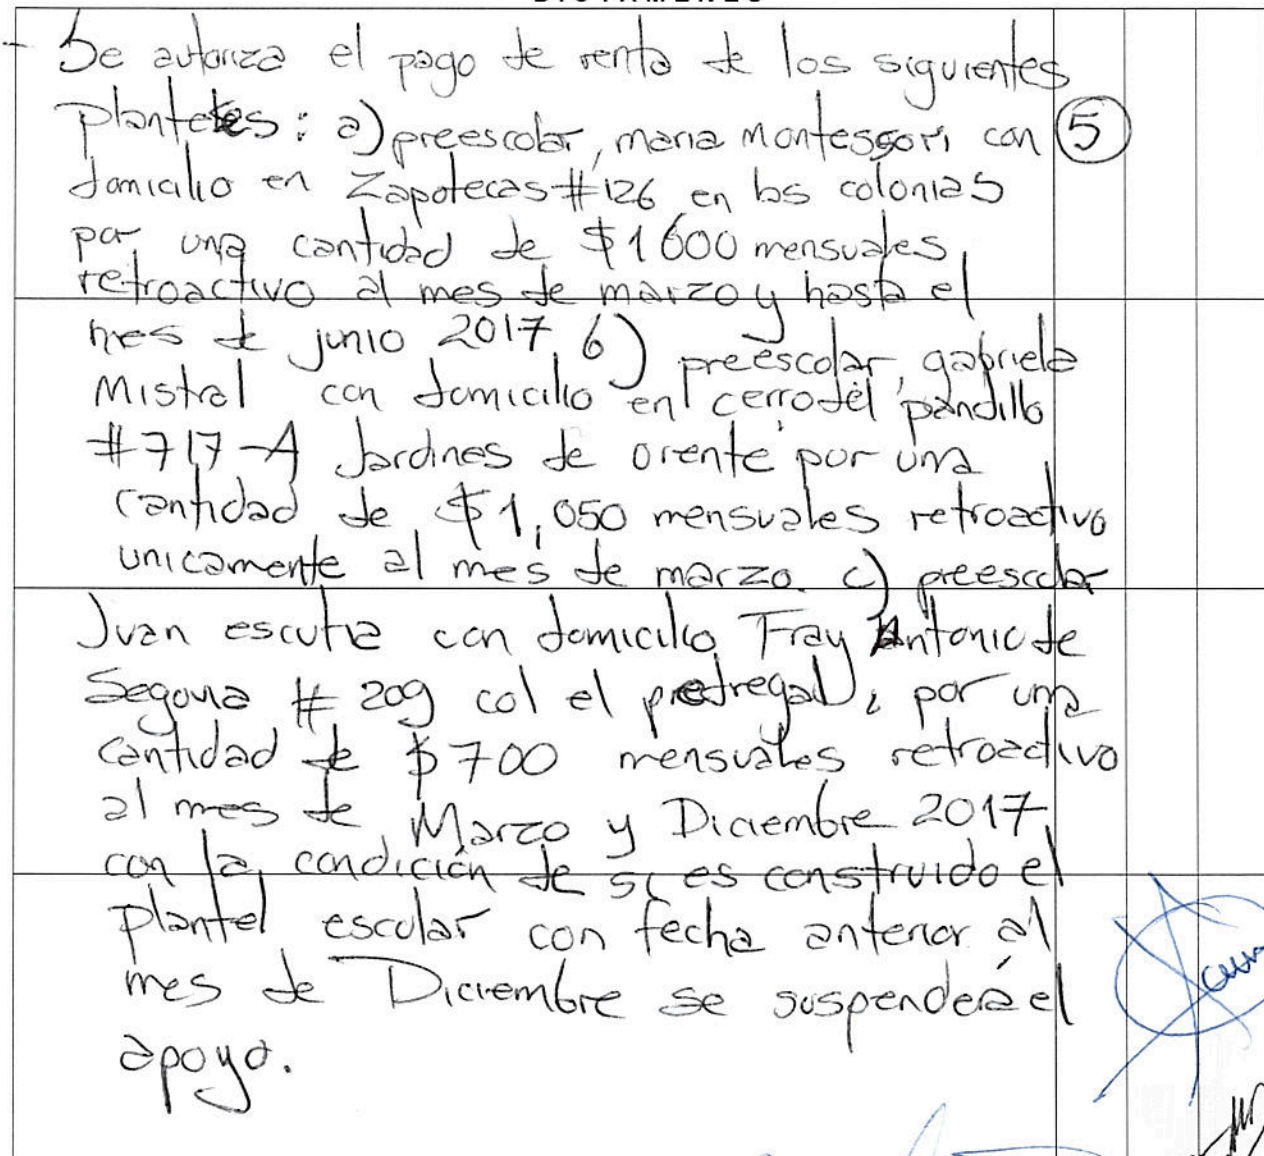 - Se autoriza el pago de renta de los siguientes
planteles: a) preescolar, maria montessori con (5)
domicilio en Zapotecas #126 en las colonias
por una cantidad de $1600 mensuales
retroactivo al mes de marzo y hasta el
mes de junio 2017, b) preescolar, gabriela
Mistral con domicilio en cerro del pandillo
#717-A Jardines de oriente por una
cantidad de $1,050 mensuales retroactivo
unicamente al mes de marzo. c) preescolar
Juan escutia con domicilio Fray Antonio de
Segovia # 209 col el pedregal, por una
cantidad de $700 mensuales retroactivo
al mes de Marzo y Diciembre 2017,
con la condición de si es construido el
plantel escolar con fecha anterior al
mes de Diciembre se suspenderá el
apoyo.